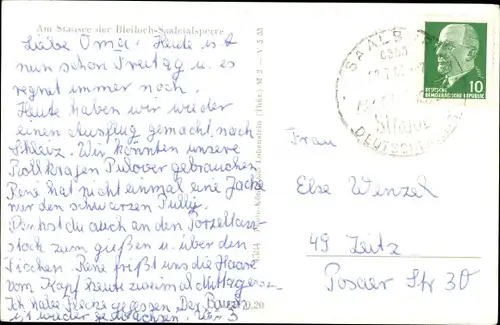 Am Stausee der Bleiloch-Saaletalsperre
Liebe Oma! Heute ist
nun schon Freitag u. es
regnet immer noch.
Heute haben wir wieder
einen Ausflug gemacht nach
Schleiz. Wir könnten unsere
Rollkragen Pulover gebrauchen
René hat nicht einmal eine Jacke
nur den schwarzen Pulli.
Denkst du auch an den Porzellan-
stock zum gießen u. über den
Tischen. René frißt uns die Haare
vom Kopf heute zweimal Mittagessen
Ich habe gegessen. Der Bauch
ist wieder gewachsen.
Lobenstein (Thür.) M 2 - V 5 33
20,20
SAALB
DEUTSCHE
DEMOKRATISCHE REPUBLIK
10
Frau
Else Wenzel
49 Zeitz
Posaer Str 30